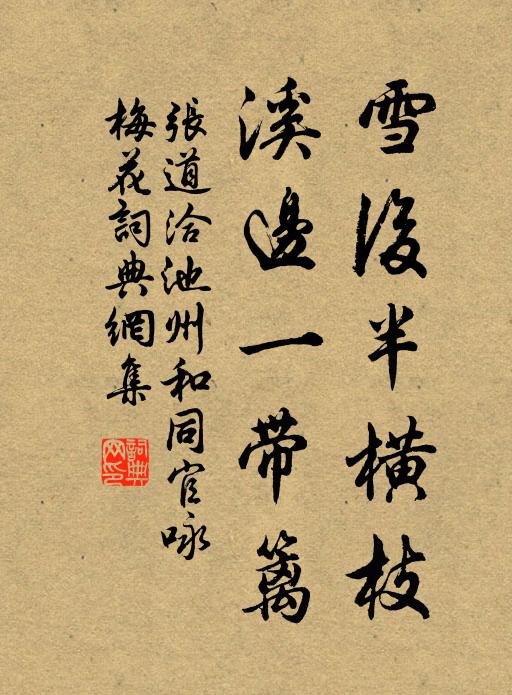 雪後半橫枝
溪邊一帶籬
張道洽池州和同官咏
梅花詞典網集
詞典网印